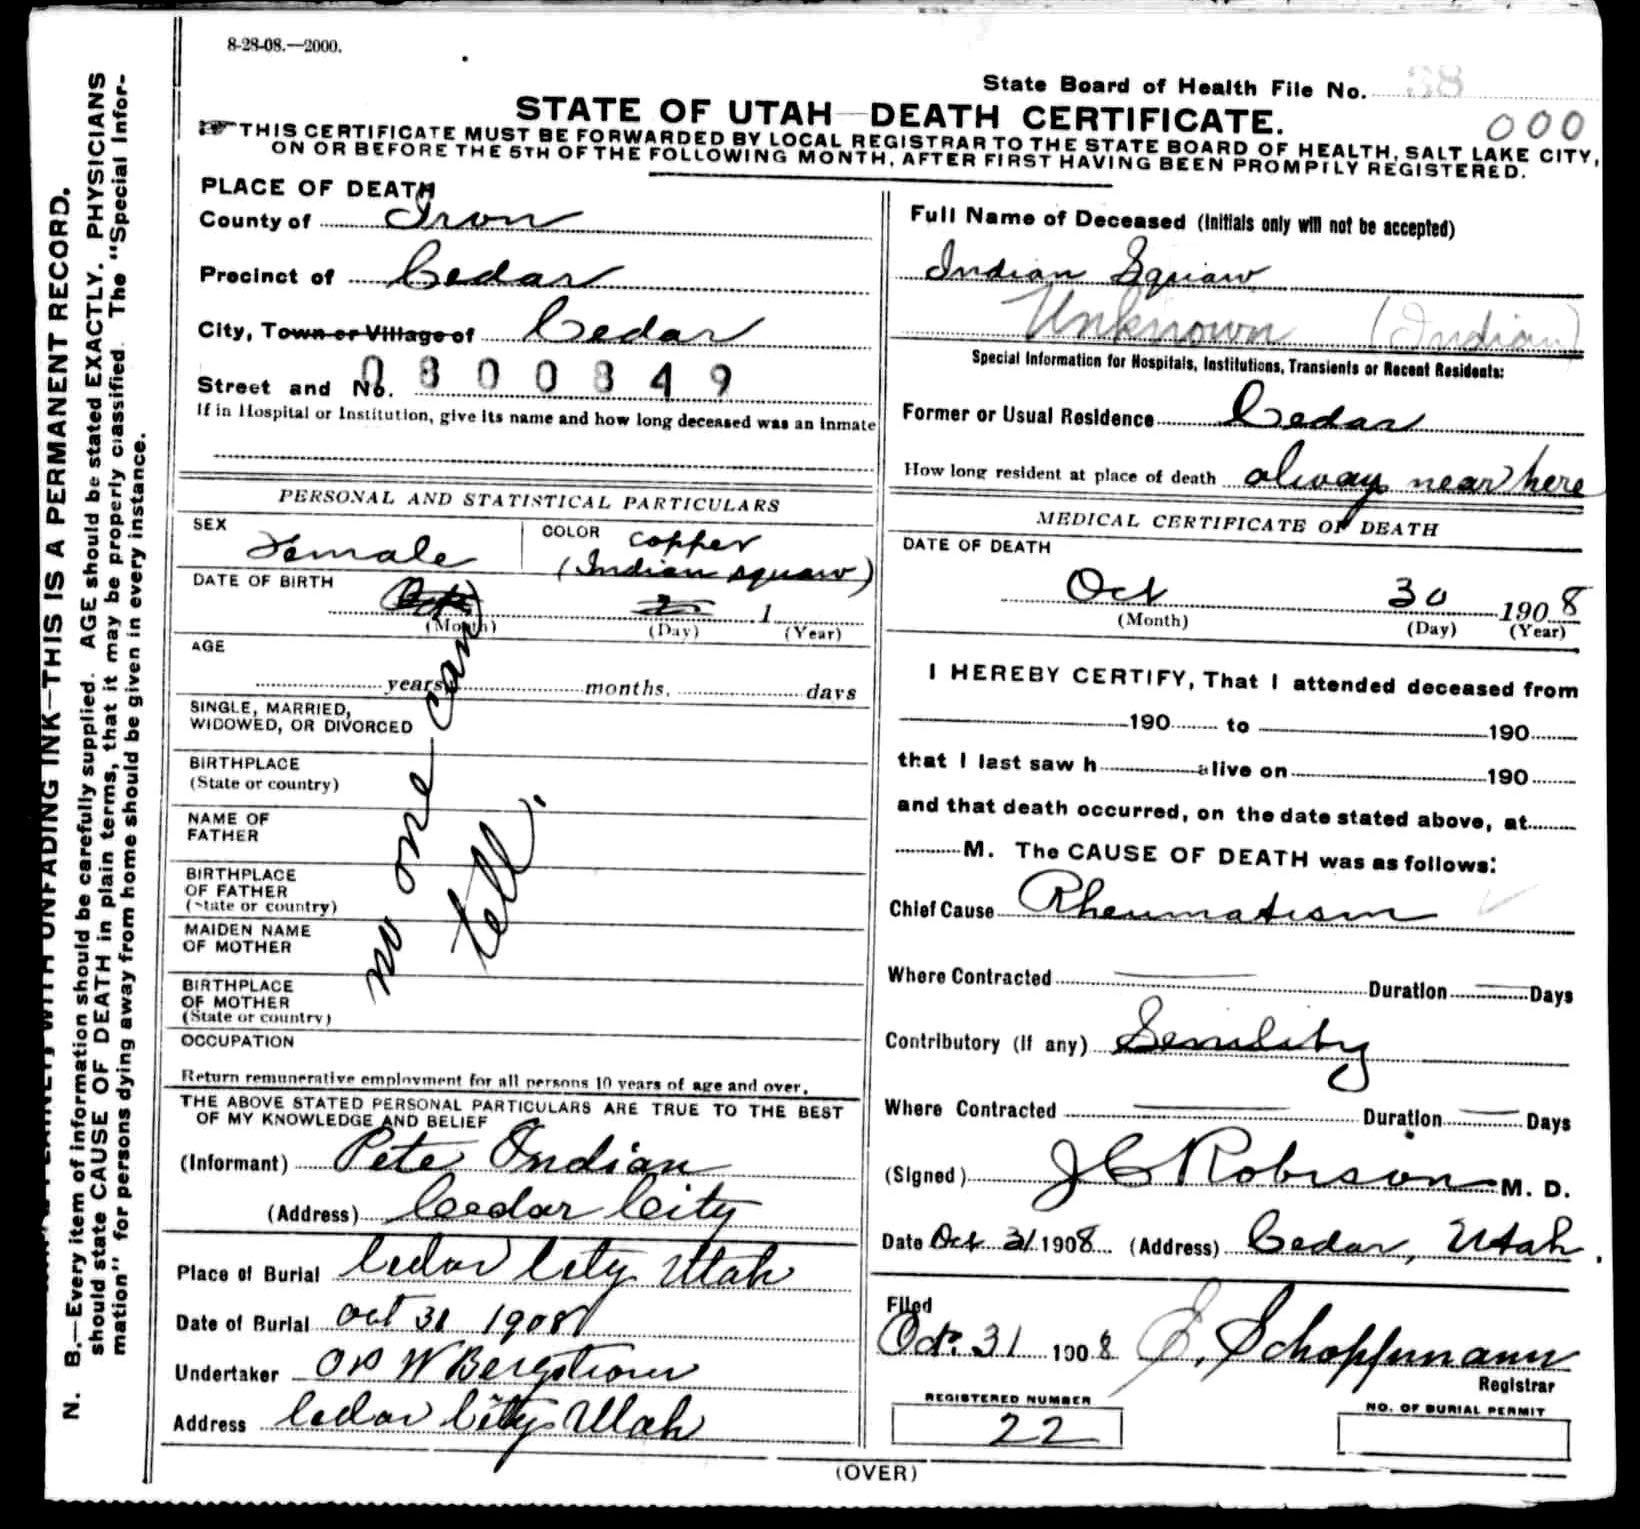 8-28-08.—2000.
State Board of Health File No. 38
STATE OF UTAH—DEATH CERTIFICATE.
000
THIS CERTIFICATE MUST BE FORWARDED BY LOCAL REGISTRAR TO THE STATE BOARD OF HEALTH, SALT LAKE CITY,
ON OR BEFORE THE 5TH OF THE FOLLOWING MONTH, AFTER FIRST HAVING BEEN PROMPTLY REGISTERED.
N. B.—Every item of information should be carefully supplied. AGE should be stated EXACTLY. PHYSICIANS
should state CAUSE OF DEATH in plain terms, that it may be properly classified. The "Special Infor-
mation" for persons dying away from home should be given in every instance.
WITH UNFADING INK—THIS IS A PERMANENT RECORD.
PLACE OF DEATH
County of Iron
Precinct of Cedar
City, Town or Village of Cedar
Street and No. 0800849
If in Hospital or Institution, give its name and how long deceased was an Inmate
PERSONAL AND STATISTICAL PARTICULARS
SEX Female
COLOR copper
(Indian squaw)
DATE OF BIRTH
1
(Month) (Day) (Year)
AGE
years months, days
SINGLE, MARRIED,
WIDOWED, OR DIVORCED
BIRTHPLACE
(State or country)
NAME OF
FATHER
BIRTHPLACE
OF FATHER
(State or country)
MAIDEN NAME
OF MOTHER
BIRTHPLACE
OF MOTHER
(State or country)
no one can
tell.
OCCUPATION
Return remunerative employment for all persons 10 years of age and over.
THE ABOVE STATED PERSONAL PARTICULARS ARE TRUE TO THE BEST
OF MY KNOWLEDGE AND BELIEF
(Informant) Pete Indian
(Address) Cedar City
Place of Burial Cedar City Utah
Date of Burial Oct 31 1908
Undertaker W Bergstrom
Address Cedar City Utah
Full Name of Deceased (Initials only will not be accepted)
Indian Squaw
Unknown (Indian)
Special Information for Hospitals, Institutions, Transients or Recent Residents:
Former or Usual Residence Cedar
How long resident at place of death always near here
MEDICAL CERTIFICATE OF DEATH
DATE OF DEATH
Oct 30 1908
(Month) (Day) (Year)
I HEREBY CERTIFY, That I attended deceased from
190 to 190
that I last saw h alive on 190
and that death occurred, on the date stated above, at
M. The CAUSE OF DEATH was as follows:
Chief Cause Rheumatism
Where Contracted Duration Days
Contributory (if any) Senility
Where Contracted Duration Days
(Signed) J C Robison M. D.
Date Oct 31 1908 (Address) Cedar, Utah.
Filed
Oct. 31 1908 E. Schoppmann
Registrar
REGISTERED NUMBER
22
NO. OF BURIAL PERMIT
(OVER)